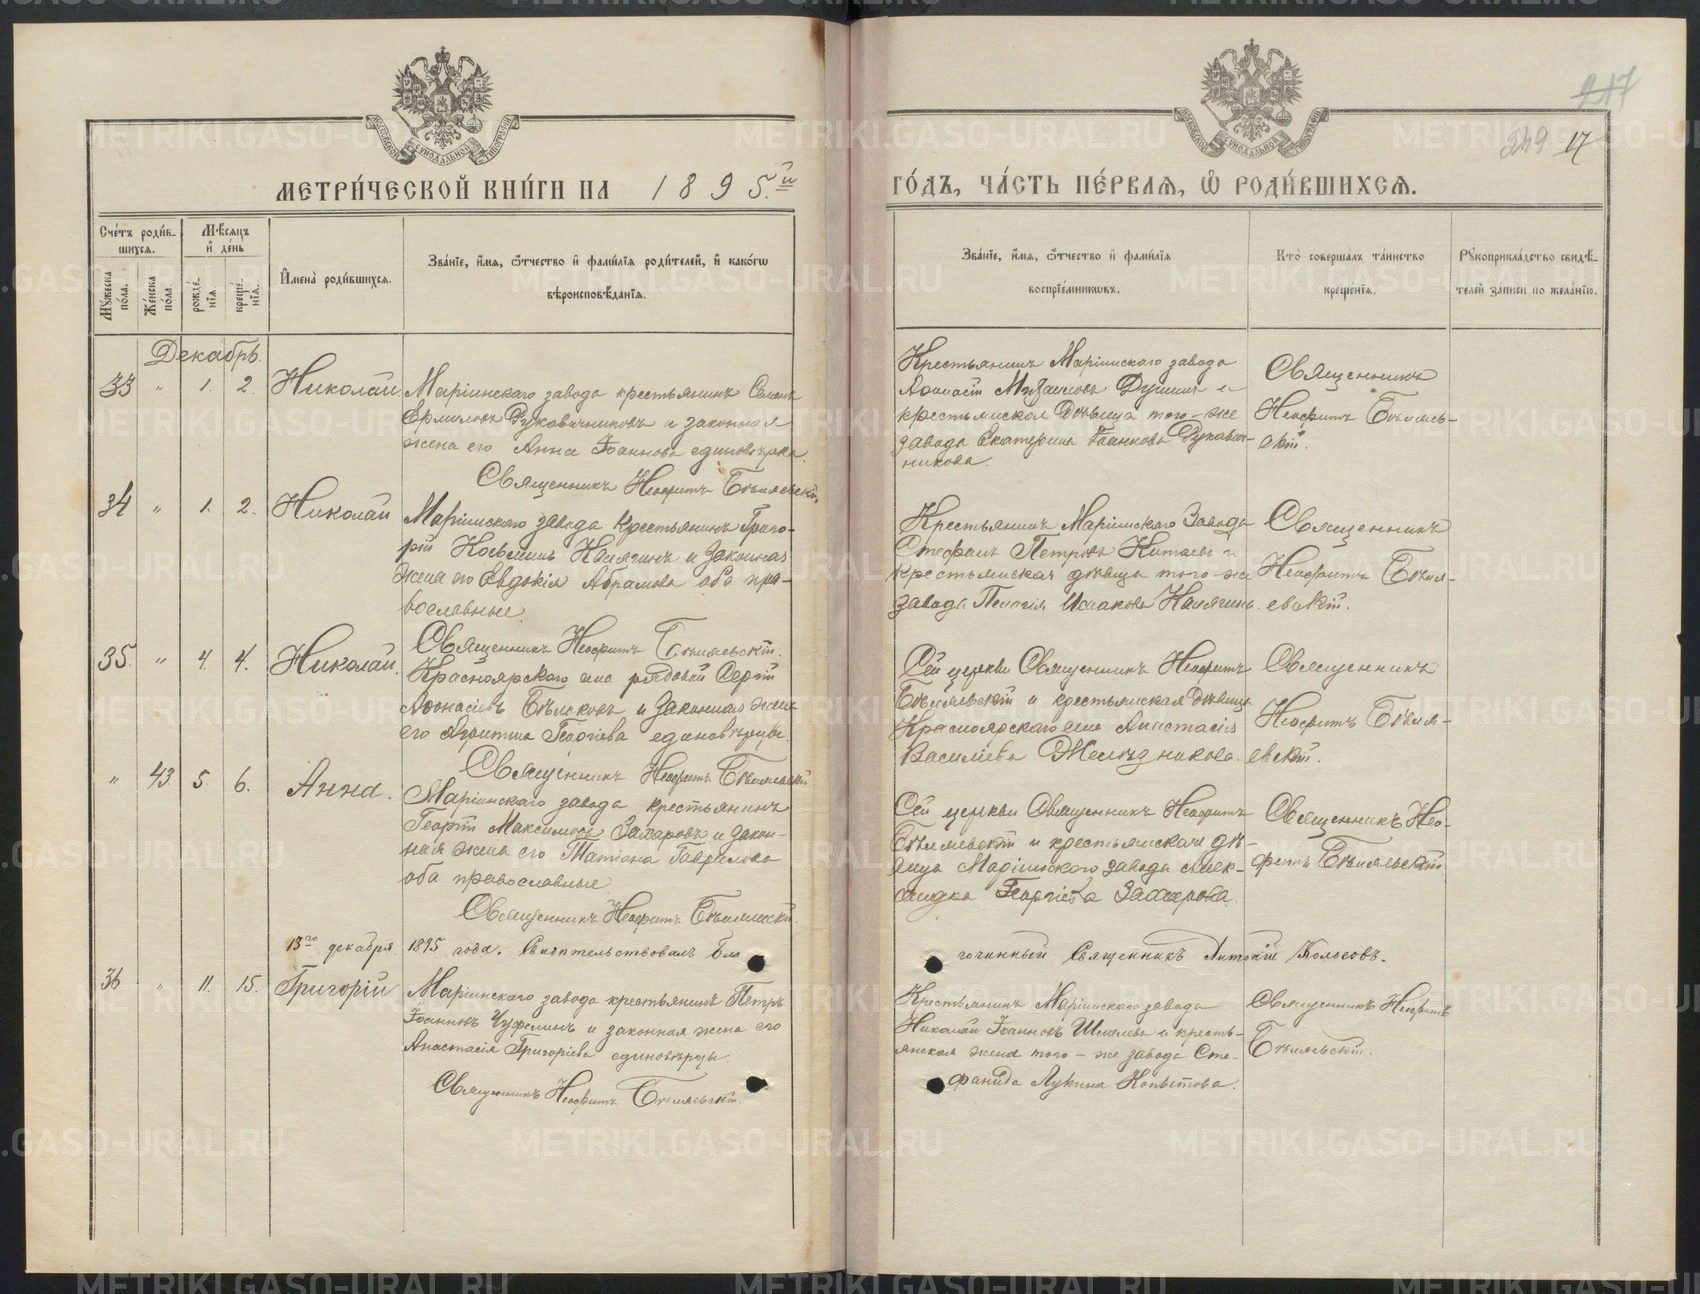 МЕТРИ́ЧЕСКОЙ КНИ́ГИ НА 1895й
ГО́ДЪ, ЧА́СТЬ ПЕ́РВАЯ, Ѡ РОДИ́ВШИХСЯ.
217
249 17
Сче́тъ роди́вшихся.
Му́жеска по́ла.
Же́нска по́ла.
Мѣ́сяцъ и де́нь
рожде́нія.
креще́нія.
Имена̀ роди́вшихся.
Зва́ніе, и́мя, ѻ́тчество и фами́лія роди́телей, и како́гѡ
вѣроисповѣ́данія.
Зва́ніе, и́мя, ѻ́тчество и фами́лія
воспріе́мникѡвъ.
Кто̀ соверша́лъ та́инство
креще́нія.
Рꙋкоприкла́дство свидѣ́-
телей за́писи по жела́нію.
Декабрь.
33 " 1. 2. Николай.
Маріинскаго завода крестьянинъ Семенъ
Ермиловъ Рукавичниковъ и законная
жена его Анна Іоаннова единовѣрка.
Священникъ Неофитъ Бѣляевскій.
Крестьянинъ Маріинскаго завода
Аѳанасій Михаиловъ и
крестьянская дѣвица того-же
завода Екатерина Іоаннова Рукавич-
никова.
Священникъ
Неофитъ Бѣляев-
скій.
34 " 1. 2. Николай
Маріинскаго завода крестьянинъ Григо-
рій Косьминъ и законная
жена его Евдокія Абрамова оба пра-
вославные.
Священникъ Неофитъ Бѣляевскій.
Крестьянинъ Маріинскаго завода
Стефанъ Петровъ Китаевъ и
крестьянская дѣвица того-же
завода Пелагія Исаакова
Священникъ
Неофитъ Бѣля-
евскій.
35 " 4. 4. Николай.
Красноярскаго рядовой Сергій
Аѳанасіевъ Бѣляковъ и законная жена
его Агриппина Георгіева единовѣрцы.
Священникъ Неофитъ Бѣляевскій
Сей церкви Священникъ Неофитъ
Бѣляевскій и крестьянская дѣвица
Красноярскаго Анастасія
Василіева Желѣзникова.
Священникъ
Неофитъ Бѣля-
евскій.
" 43 5. 6. Анна.
Маріинскаго завода крестьянинъ
Георгій Максимовъ Захаровъ и закон-
ная жена его Татіана Гаврилова
оба православные.
Священникъ Неофитъ Бѣляевскій.
Сей церкви Священникъ Неофитъ
Бѣляевскій и крестьянская дѣ-
вица Маріинскаго завода Алек-
сандра Георгіева Захарова.
Священникъ Нео-
фитъ Бѣляевскій
13го декабря 1895 года. Свидѣтельствовалъ Бла
гочинный Священникъ Антоній Колосовъ.
36 " 11. 15. Григорій
Маріинскаго завода крестьянинъ Петръ
Іоанновъ и законная жена его
Анастасія Григоріева единовѣрцы.
Священникъ Неофитъ Бѣляевскій.
Крестьянинъ Маріинскаго завода
Николай Іоанновъ Шмелевъ и кресть-
янская жена того-же завода Сте-
фанида Лукина Копытова.
Священникъ Неофитъ
Бѣляевскій.
METRIKI.GASO-URAL.RU